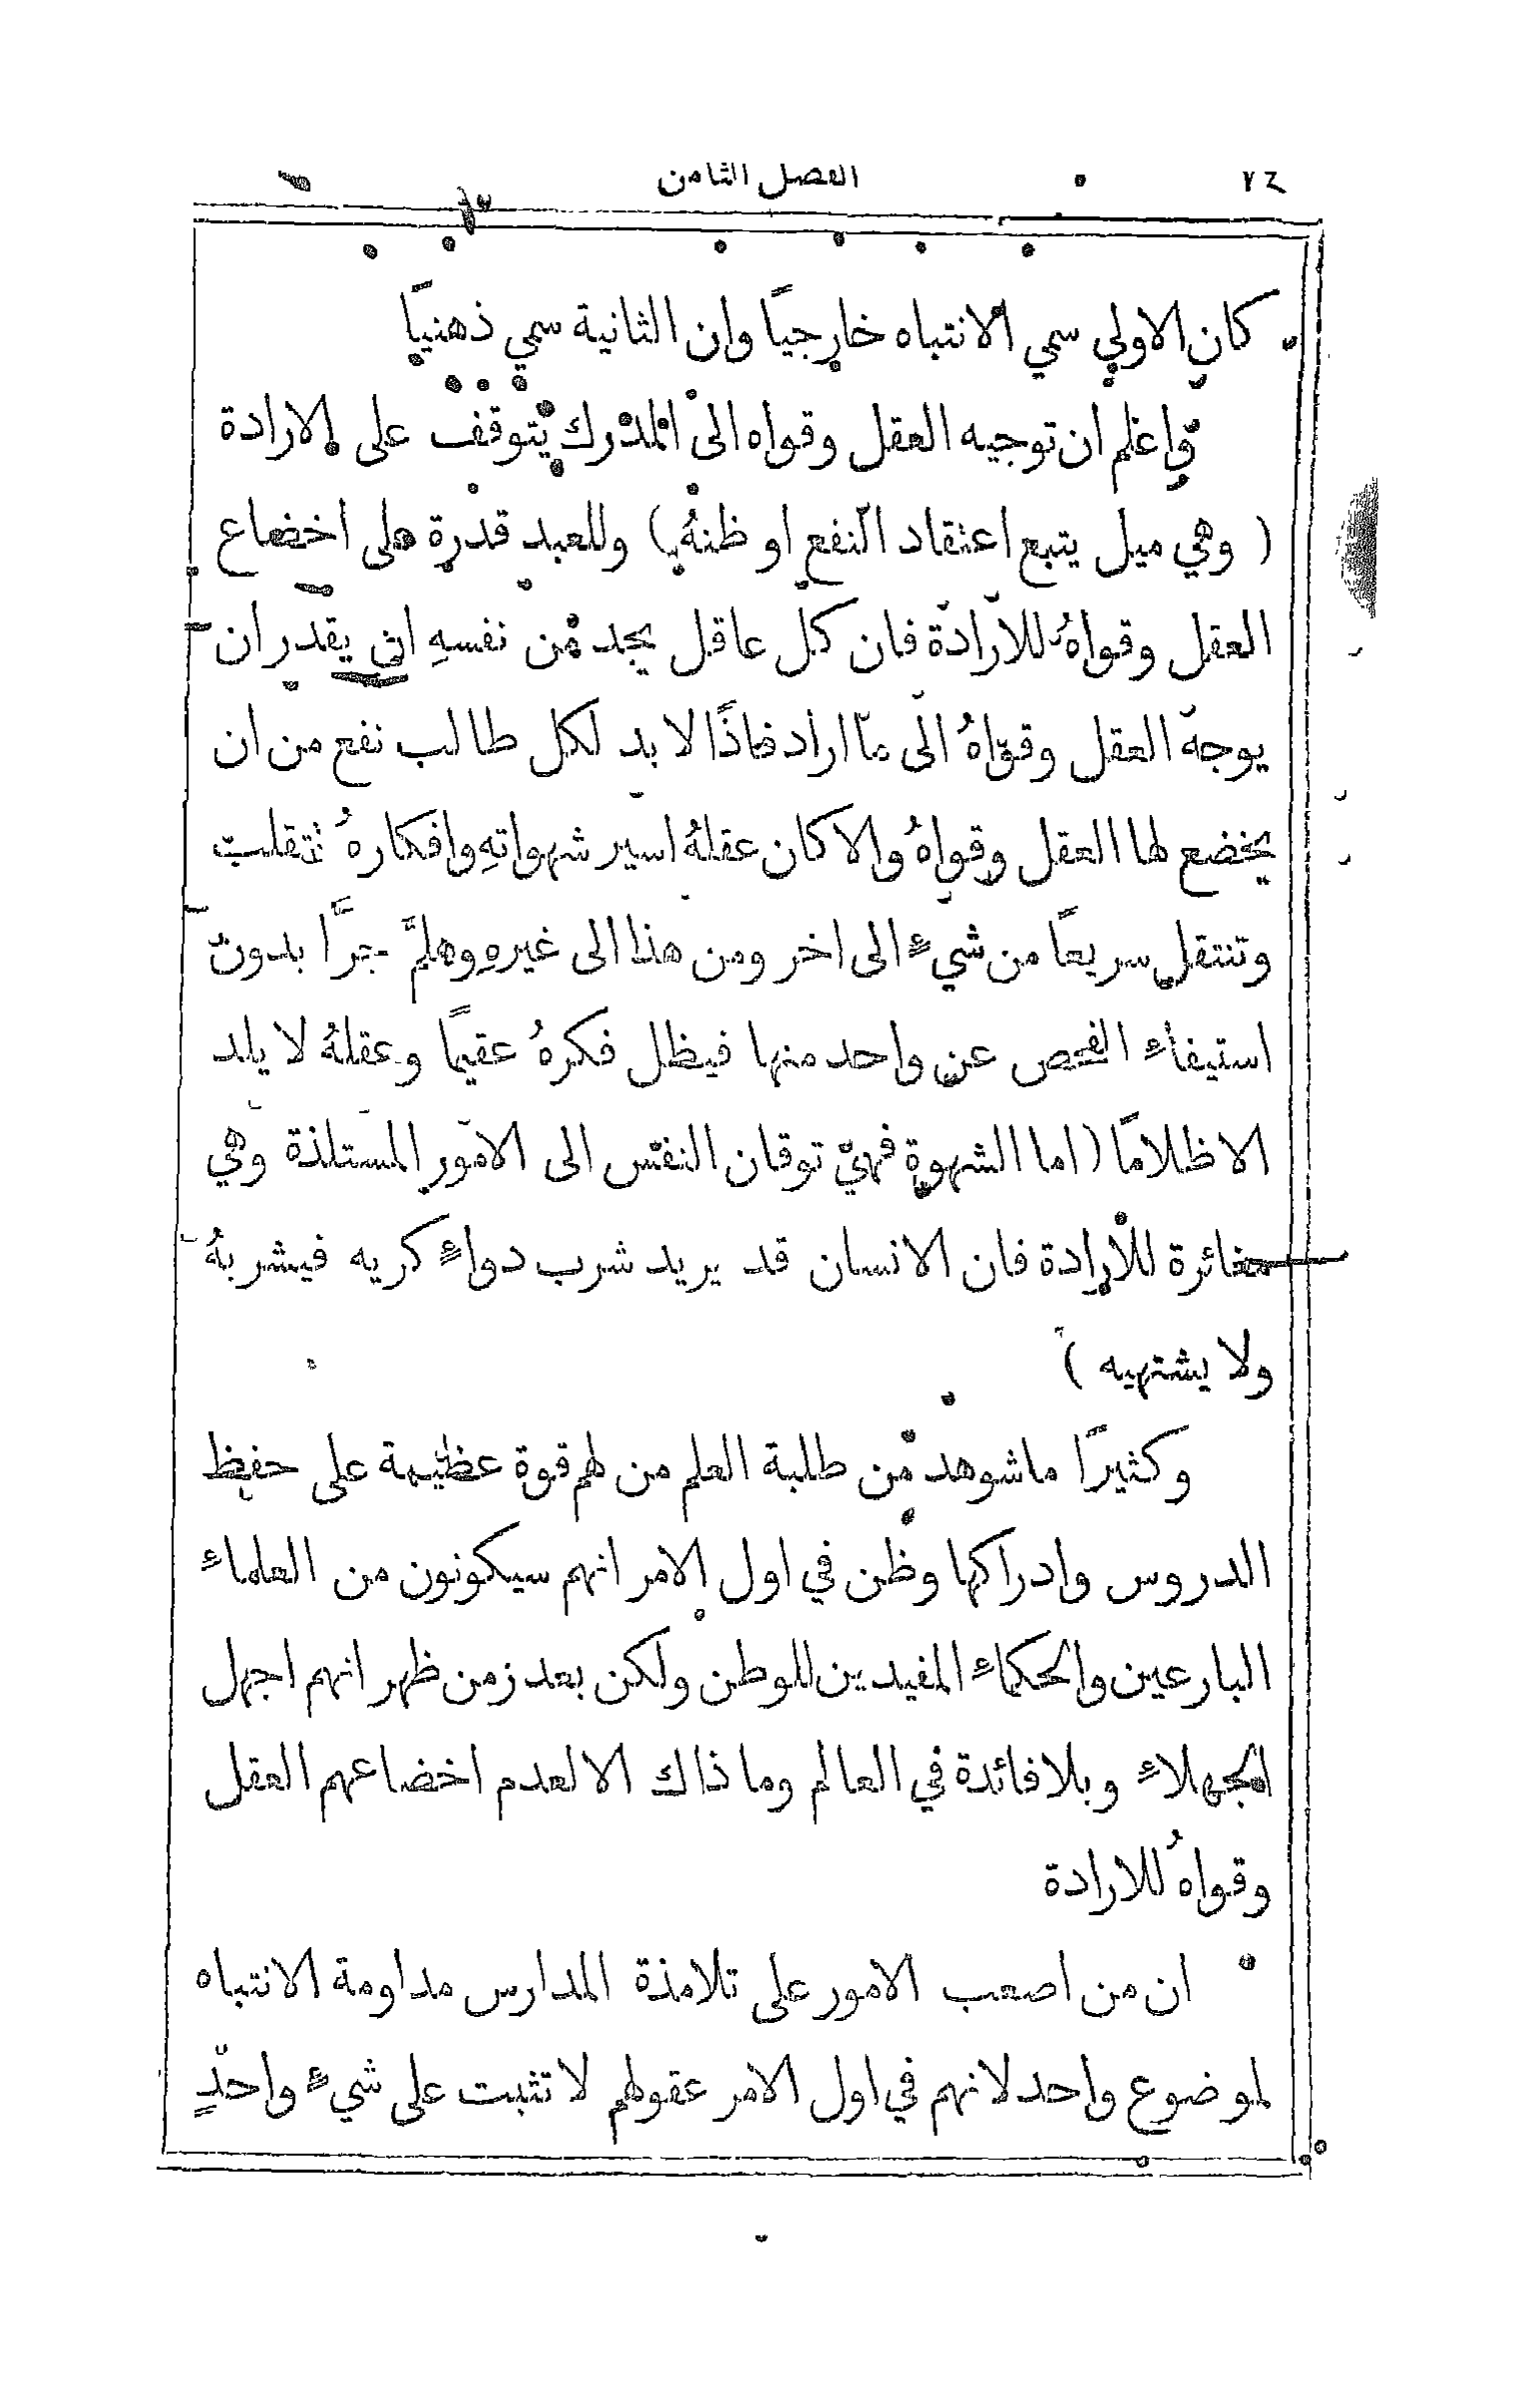 الفصل الثامن
كان الاولي سمي الانتباه خارجيًا وان الثانية سمي ذهنيًا
واعلم ان توجيه العقل وقواه الى المدرك يتوقف على الارادة
( وهي ميل يتبع اعتقاد النفع او ظنهُ ) وللعبد قدرة على اخضاع
العقل وقواهُ للارادة فان كل عاقل يجد من نفسهِ اني يقدر ان
يوجه العقل وقواهُ الى ما اراد فاذًا لا بد لكل طالب نفع من ان
يخضع لها العقل وقواهُ والا كان عقلهُ اسير شهواتهِ وافكارهُ تتقلب
وتنتقل سريعًا من شيءٍ الى اخر ومن هذا الى غيرهِ وهلمَّ جرًّا بدون
استيفاءِ الفحص عن واحد منها فيظل فكرهُ عقيمًا وعقلهُ لا يلد
الا ظلامًا ( اما الشهوة فهي توقان النفس الى الامور المستلذة وهي
مغائرة للارادة فان الانسان قد يريد شرب دواءٍ كريه فيشربهُ
ولا يشتهيه )
وكثيرًا ما شوهد من طلبة العلم من لهم قوة عظيمة على حفظ
الدروس وادراكها وظن في اول الامر انهم سيكونون من العلماءِ
البارعين والحكماءِ المفيدين للوطن ولكن بعد زمن ظهر انهم اجهل
الجهلاءِ وبلا فائدة في العالم وما ذاك الا لعدم اخضاعهم العقل
وقواهُ للارادة
ان من اصعب الامور على تلامذة المدارس مداومة الانتباه
لموضوع واحد لانهم في اول الامر عقولهم لا تثبت على شيءٍ واحدٍ